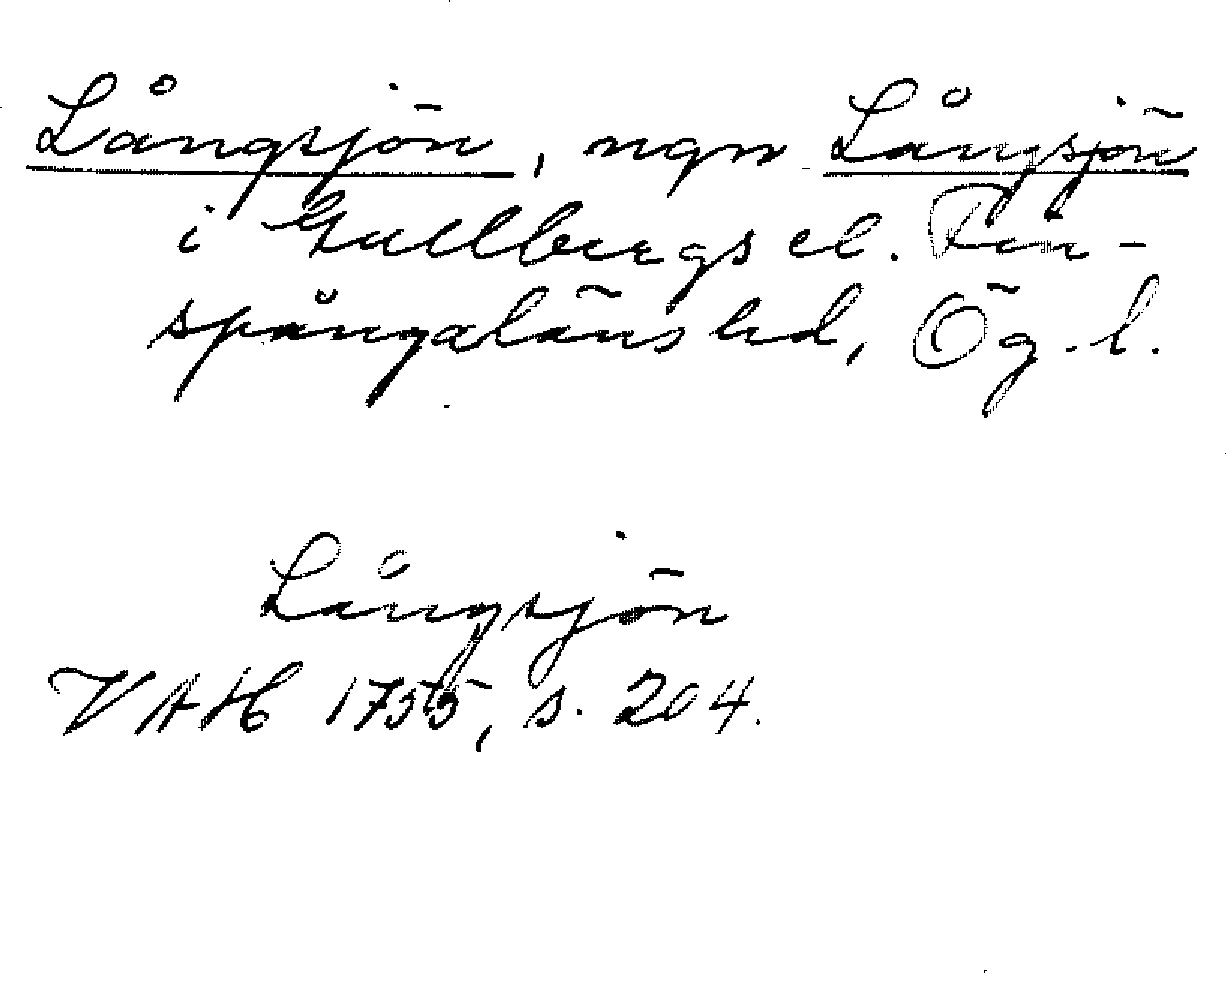 Långsjön, ngn Långsjön
i Gullbergs el. Fin-
spångaläns hd, Ög. l.
Långsjön
VAH 1755, s. 204.